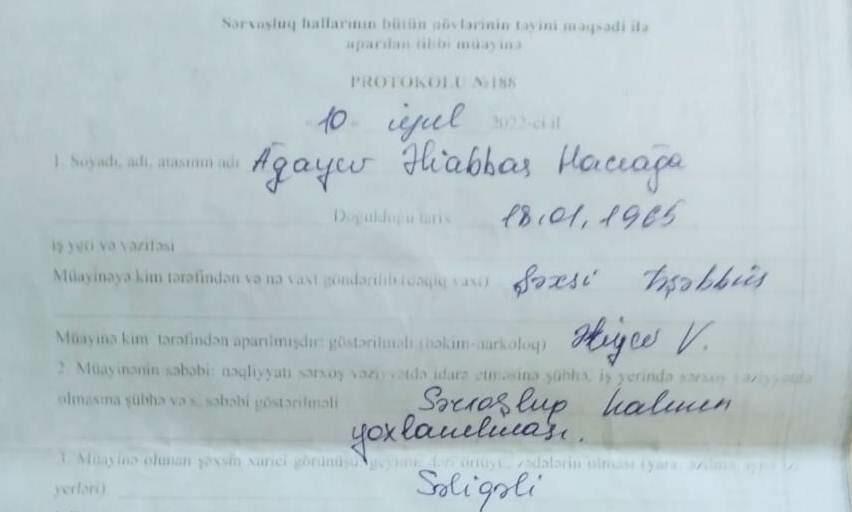 Sərxoşluq hallarının bütün növlərinin təyini məqsədi ilə
aparılan tibbi müayinə
PROTOKOLU №188
10 iyul 2022-ci il
1. Soyadı, adı, atasının adı Ağayev Əliabbas Hacıağa
Doğulduğu tarix 18.01.1965
iş yeri və vəzifəsi
Müayinəyə kim tərəfindən və nə vaxt göndərilib (dəqiq vaxt) Şəxsi təşəbbüs
Müayinə kim tərəfindən aparılmışdır: göstərilməli (həkim-narkoloq) Əliyev V.
2. Müayinənin səbəbi: nəqliyyatı sərxoş vəziyyətdə idarə etməsinə şübhə, iş yerində sərxoş vəziyyətdə
olmasına şübhə və s. səbəbi göstərilməli Sərxoşluq halının
yoxlanılması.
3. Müayinə olunan şəxsin xarici görünüşü, geyimi, dəri örtüyü, zədələrin olması (yara, əzilmə,
yerləri) Səliqəli